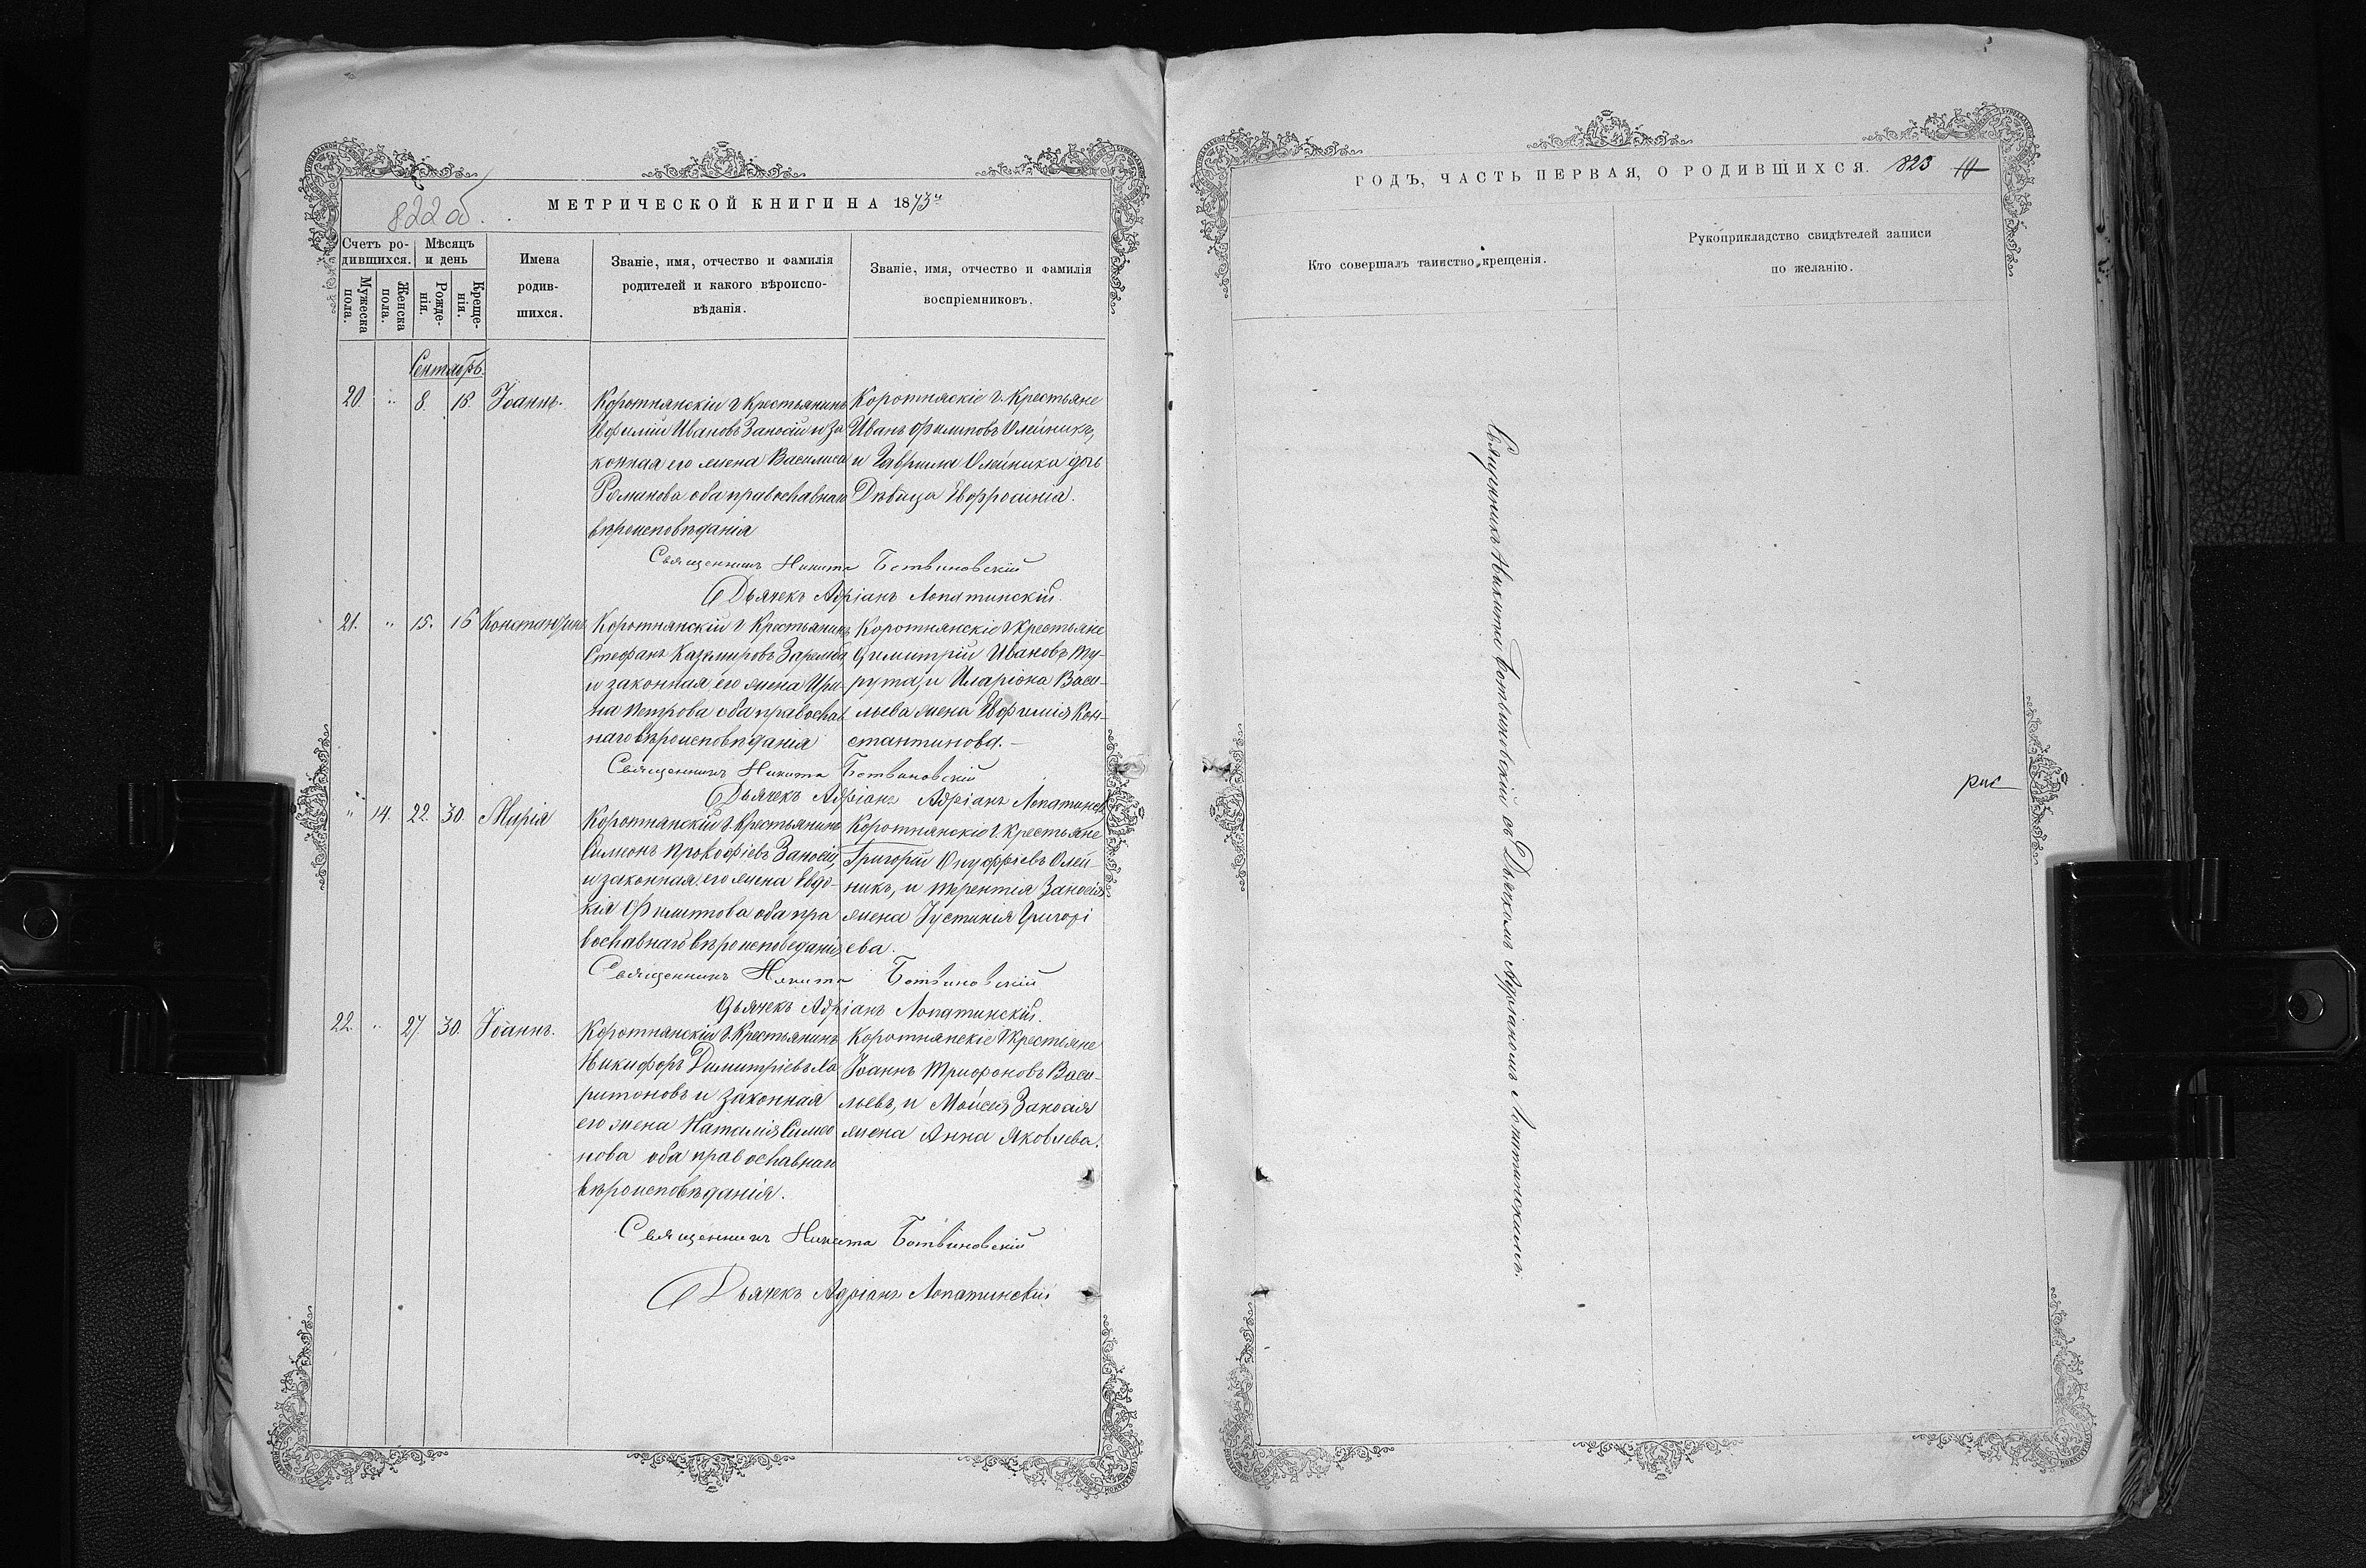 822 об.
МЕТРИЧЕСКОЙ КНИГИ НА 1873й
Счетъ ро-
дившихся.
Мѣсяцъ
и день
Мужеска
пола.
Женска
пола.
Рожде-
нія.
Креще-
нія.
Имена
родив-
шихся.
Званіе, имя, отчество и фамилія
родителей и какого вѣроиспо-
вѣданія.
Званіе, имя, отчество и фамилія
воспріемниковъ.
Сентябрь.
20. " 8. 16. Іоаннъ.
Коротнянскій г. Крестьянинъ
Ефимій Ивановъ Заносій и за
конная его жена Василиса
Романова оба православнаго
вѣроисповѣданія
Коротняскіе г. Крестьяне
Иванъ Филиповъ Олейникъ,
и Гаврила Олейника дочь
Дѣвица Евфросинія.
Священникъ Никита Ботвиновскій
Дьячекъ Адріанъ Лопатинскій.
21. " 15. 16 Константинъ
Коротнянскій г Крестьянинъ
Стефанъ Каземировъ Заремба
и законная его жена Ири-
на Петрова оба православ
наго вѣроисповѣданія
Коротнянскіе г Крестьяне
Димитрій Ивановъ Ту-
рута, и Иларіона Васи-
льева жена Евфимія Кон-
стантинова. -
Священникъ Никита Ботвиновскій
Дьячекъ Адріанъ Адріанъ Лопатинск
" 14. 22. 30. Марія
Коротнянскій г. Крестьянинъ
Симеонъ Прокофіевъ Заносій,
и законная его жена Евдо-
кія Филиппова оба пра
вославнаго вѣроисповеданія
Коротнянскіе г. Крестьяне
Григорій Онуфріевъ Олей-
никъ, и Терентія Заносія
жена Іустинія Григорі
ева.
Священникъ Никита Ботвиновскій
Дьячекъ Адріанъ Лопатинскій.
22. " 27. 30. Іоаннъ.
Коротнянскій г. Крестьянинъ
Никифоръ Димитріевъ Ха
ритоновъ и законная
его жена Наталія Симео
нова оба православнаго
вѣроисповѣданія.
Коротнянскіе г Крестьяне
Іоаннъ Трифоновъ Васи-
льевъ, и Мойсея Заносія
жена Анна Яковлева.
Священникъ Никита Ботвиновскій
Дьячекъ Адріанъ Лопатинскій
ГОДЪ, ЧАСТЬ ПЕРВАЯ, О РОДИВШИХСЯ. 823
Кто совершалъ таинство крещенія.
Рукоприкладство свидѣтелей записи
по желанію.
Священникъ Никита Ботвиновскій съ Дьячкомъ Адріаномъ Лопатинскимъ.